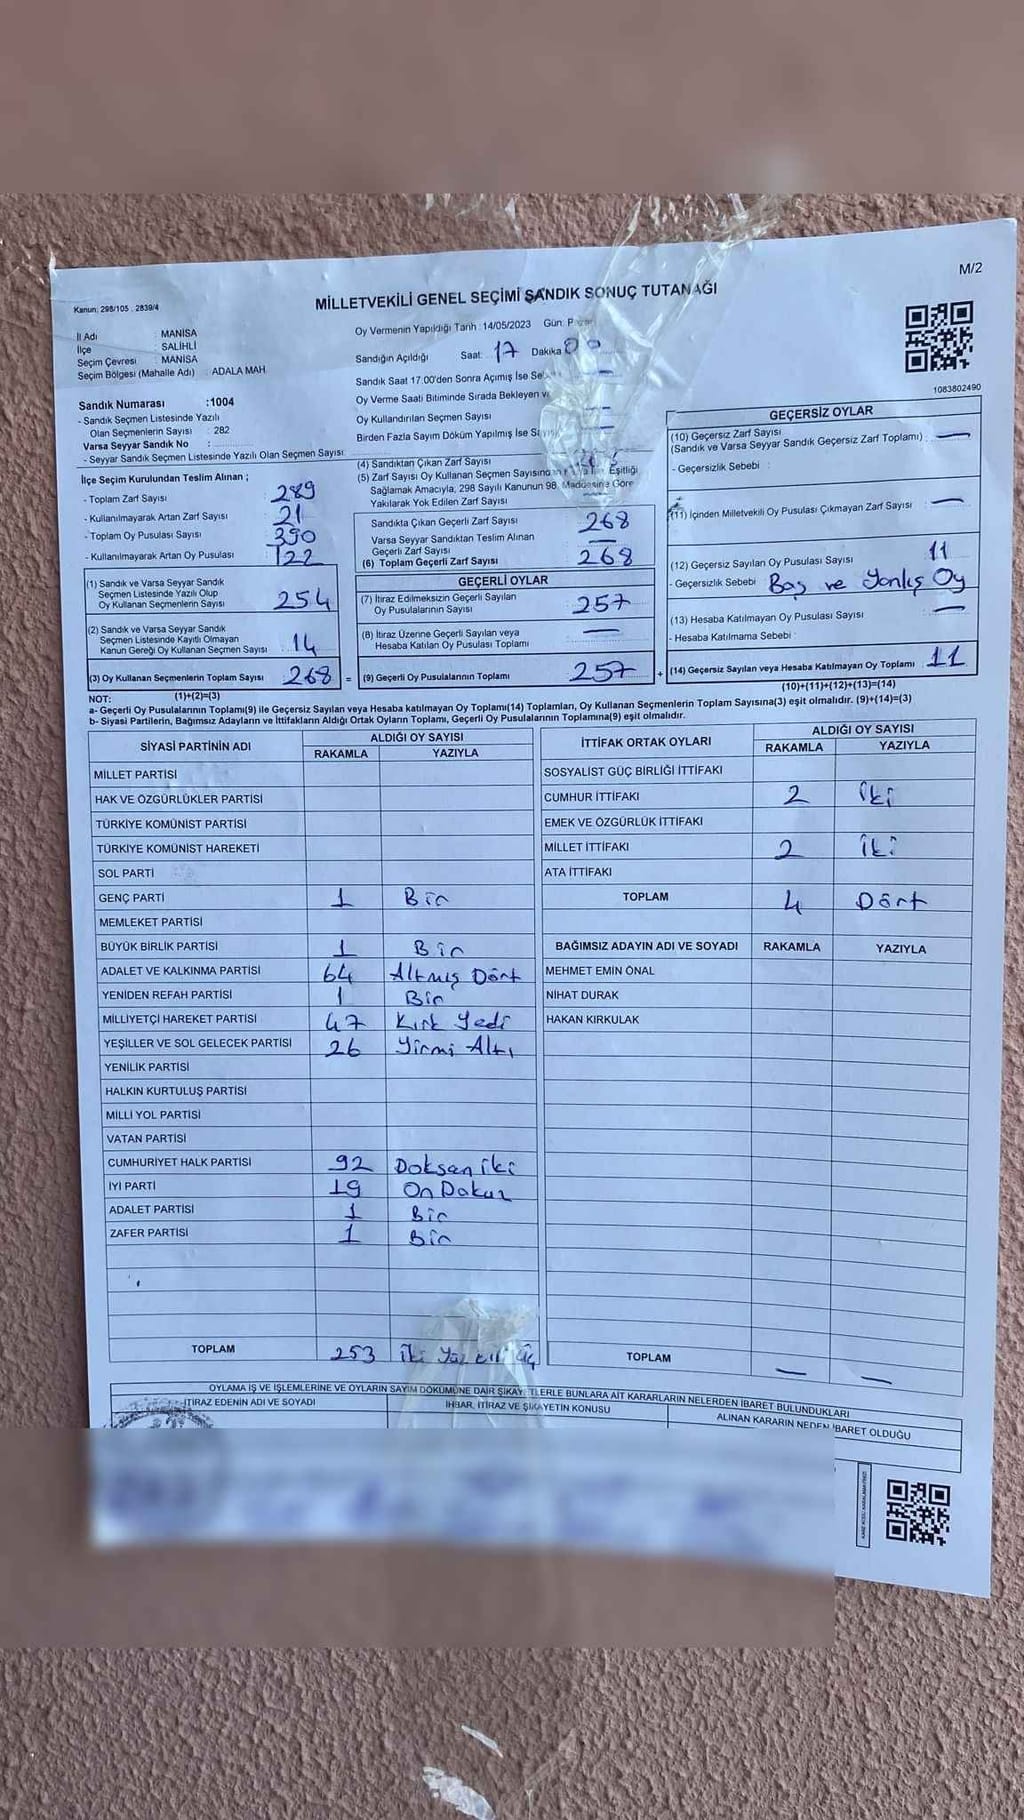 M/2
Kanun: 298/105 2839/4
MİLLETVEKİLİ GENEL SEÇİMİ SANDIK SONUÇ TUTANAĞI
İl Adı MANİSA
İlçe SALİHLİ
Seçim Çevresi MANİSA
Seçim Bölgesi (Mahalle Adı) ADALA MAH.
Sandık Numarası :1004
- Sandık Seçmen Listesinde Yazılı
Olan Seçmenlerin Sayısı : 282
Varsa Seyyar Sandık No :
- Seyyar Sandık Seçmen Listesinde Yazılı Olan Seçmen Sayısı:
Oy Vermenin Yapıldığı Tarih :14/05/2023 Gün:
Sandığın Açıldığı Saat: 17 Dakika 00
Sandık Saat 17.00'den Sonra Açımış İse
Oy Verme Saati Bitiminde Sırada Bekleyen
Oy Kullandırılan Seçmen Sayısı
Birden Fazla Sayım Döküm Yapılmış İse
1083802490
İlçe Seçim Kurulundan Teslim Alınan ;
- Toplam Zarf Sayısı 289
- Kullanılmayarak Artan Zarf Sayısı 21
- Toplam Oy Pusulası Sayısı 390
- Kullanılmayarak Artan Oy Pusulası 122
(1) Sandık ve Varsa Seyyar Sandık
Seçmen Listesinde Yazılı Olup
Oy Kullanan Seçmenlerin Sayısı 254
(2) Sandık ve Varsa Seyyar Sandık
Seçmen Listesinde Kayıtlı Olmayan
Kanun Gereği Oy Kullanan Seçmen Sayısı : 14
(3) Oy Kullanan Seçmenlerin Toplam Sayısı 268 =
(4) Sandıktan Çıkan Zarf Sayısı
(5) Zarf Sayısı Oy Kullanan Seçmen Sayısından Eşitliği
Sağlamak Amacıyla, 298 Sayılı Kanunun 98. Maddesine Göre
Yakılarak Yok Edilen Zarf Sayısı
Sandıkta Çıkan Geçerli Zarf Sayısı 268
Varsa Seyyar Sandıktan Teslim Alınan
Geçerli Zarf Sayısı —
(6) Toplam Geçerli Zarf Sayısı 268
GEÇERLİ OYLAR
(7) İtiraz Edilmeksizin Geçerli Sayılan
Oy Pusulalarının Sayısı 257
(8) İtiraz Üzerine Geçerli Sayılan veya
Hesaba Katılan Oy Pusulası Toplamı —
(9) Geçerli Oy Pusulalarının Toplamı 257 +
GEÇERSİZ OYLAR
(10) Geçersiz Zarf Sayısı
(Sandık ve Varsa Seyyar Sandık Geçersiz Zarf Toplamı) : —
- Geçersizlik Sebebi :
(11) İçinden Milletvekili Oy Pusulası Çıkmayan Zarf Sayısı : —
(12) Geçersiz Sayılan Oy Pusulası Sayısı 11
- Geçersizlik Sebebi Boş ve Yanlış Oy
(13) Hesaba Katılmayan Oy Pusulası Sayısı —
- Hesaba Katılmama Sebebi :
(14) Geçersiz Sayılan veya Hesaba Katılmayan Oy Toplamı 11
NOT: (1)+(2)=(3) (10)+(11)+(12)+(13)=(14)
a- Geçerli Oy Pusulalarının Toplamı(9) ile Geçersiz Sayılan veya Hesaba katılmayan Oy Toplamı(14) Toplamları, Oy Kullanan Seçmenlerin Toplam Sayısına(3) eşit olmalıdır. (9)+(14)=(3)
b- Siyasi Partilerin, Bağımsız Adayların ve İttifakların Aldığı Ortak Oyların Toplamı, Geçerli Oy Pusulalarının Toplamına(9) eşit olmalıdır.
SİYASİ PARTİNİN ADI ALDIĞI OY SAYISI
RAKAMLA YAZIYLA
MİLLET PARTİSİ
HAK VE ÖZGÜRLÜKLER PARTİSİ
TÜRKİYE KOMÜNİST PARTİSİ
TÜRKİYE KOMÜNİST HAREKETİ
SOL PARTİ
GENÇ PARTİ 1 Bir
MEMLEKET PARTİSİ
BÜYÜK BİRLİK PARTİSİ 1 Bir
ADALET VE KALKINMA PARTİSİ 64 Altmış Dört
YENİDEN REFAH PARTİSİ 1 Bir
MİLLİYETÇİ HAREKET PARTİSİ 47 Kırk Yedi
YEŞİLLER VE SOL GELECEK PARTİSİ 26 Yirmi Altı
YENİLİK PARTİSİ
HALKIN KURTULUŞ PARTİSİ
MİLLİ YOL PARTİSİ
VATAN PARTİSİ
CUMHURİYET HALK PARTİSİ 92 Doksan iki
İYİ PARTİ 19 On Dokuz
ADALET PARTİSİ 1 Bir
ZAFER PARTİSİ 1 Bir
TOPLAM 253 İki Yüz Üç
İTTİFAK ORTAK OYLARI ALDIĞI OY SAYISI
RAKAMLA YAZIYLA
SOSYALİST GÜÇ BİRLİĞİ İTTİFAKI
CUMHUR İTTİFAKI 2 İki
EMEK VE ÖZGÜRLÜK İTTİFAKI
MİLLET İTTİFAKI 2 İki
ATA İTTİFAKI
TOPLAM 4 Dört
BAĞIMSIZ ADAYIN ADI VE SOYADI RAKAMLA YAZIYLA
MEHMET EMİN ÖNAL
NİHAT DURAK
HAKAN KIRKULAK
TOPLAM — —
OYLAMA İŞ VE İŞLEMLERİNE VE OYLARIN SAYIM DÖKÜMÜNE DAİR ŞİKAYETLERLE BUNLARA AİT KARARLARIN NELERDEN İBARET BULUNDUKLARI
İTİRAZ EDENİN ADI VE SOYADI İHBAR, İTİRAZ VE ŞİKAYETİN KONUSU ALINAN KARARIN NEDEN İBARET OLDUĞU